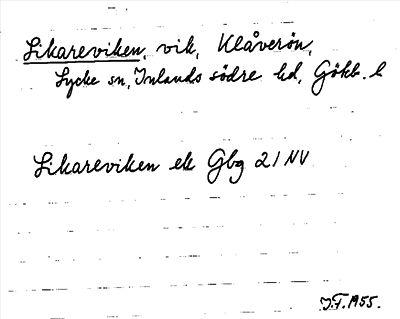 Likareviken, vik, Klåverön,
Lycke sn, Inlands södre hd, Gökb. l
Likareviken ek Gbg 21 NV
J.F. 1955.